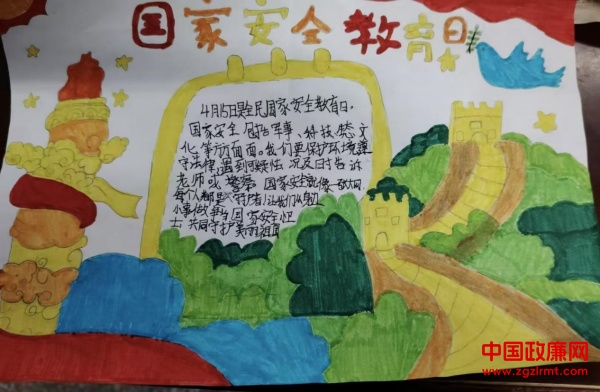 国家安全教育日
4月15日是全民国家安全教育日。
国家安全包括军事、科技、生态、文
化等方方面面。我们要保护环境、遵
守法律,遇到可疑情况及时告诉
老师或警察。国家安全就像一张大网
每个人都是守护者!让我们从身边
小事做起,国家安全
士,共同守护美丽祖国
中国政廉网
www.zgzlrmt.com